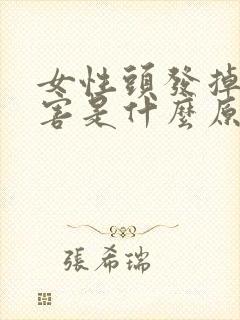 女性頭發掉
害是什麼原
張希瑞